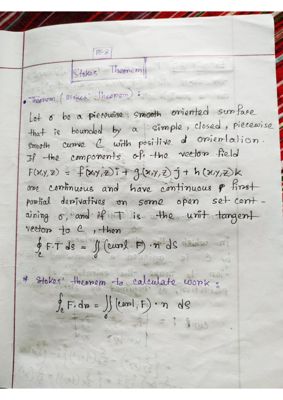 Stokes' Theorem
• Theorem (Stokes' Theorem) :
Let σ be a piecewise smooth oriented surface
that is bounded by a simple, closed, piecewise
smooth curve C with positive d orientation.
If the components of the vector field
F(x,y,z) = f(x,y,z)i + g(x,y,z)j + h(x,y,z)k
are continuous and have continuous first
partial derivatives on some open set cont-
aining σ, and if T is the unit tangent
vector to C, then
∮_C F.T ds = ∬_σ (curl F) . n ds
* Stokes' theorem to calculate work :
∮_C F.dr = ∬_σ (curl, F) . n ds